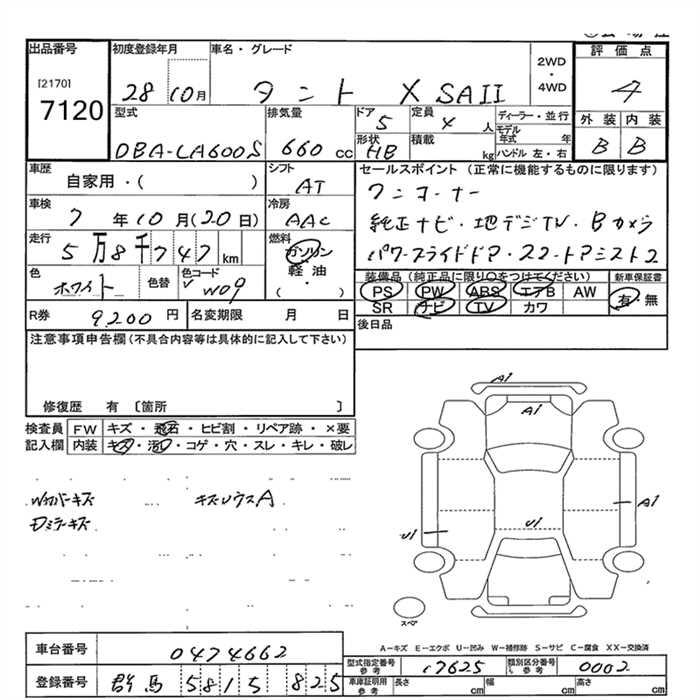 出品番号
[2170]
7120
初度登録年月
28 10月
車名・グレード
タント X SAII
2WD
・
4WD
評価点
4
外装 内装
B B
型式
DBA-LA600S
排気量
660 cc
ドア
5
定員
4 人
形状
HB
積載
kg
ディーラー・並行
モデル
年式 年
ハンドル 左・右
車歴
自家用・( )
車検
7 年 10 月 (20 日)
走行
5万8千747 km
色
ホワイト
色替
色コード
W09
シフト
AT
冷房
AAC
燃料
ガソリン
・
軽油
・
( )
R券
9,200 円
名変期限 月 日
セールスポイント(正常に機能するものに限ります)
ワンオーナー
純正ナビ・地デジTV・Bカメラ
パワースライドドア・スマートアシスト2
装備品(純正品に限り○をつけてください)
PS PW ABS エアB AW
SR ナビ TV カワ
新車保証書
有・無
後日品
注意事項申告欄(不具合内容等は具体的に記入して下さい)
修復歴 有〔箇所 〕
検査員
記入欄
FW キズ・飛石・ヒビ割・リペア跡・×要
内装 キズ・汚レ・コゲ・穴・スレ・キレ・破レ
キズリウスA
A1
A1
A1
U1
U1
スペア
A-キズ E-エクボ U-凹み W-補修跡 S-サビ C-腐食 XX-交換済
車台番号
0474662
登録番号
群馬 5815 825
型式指定番号
参考
17625
類別区分番号
参考
0002
車庫証明用
参考
長さ cm
幅 cm
高さ cm